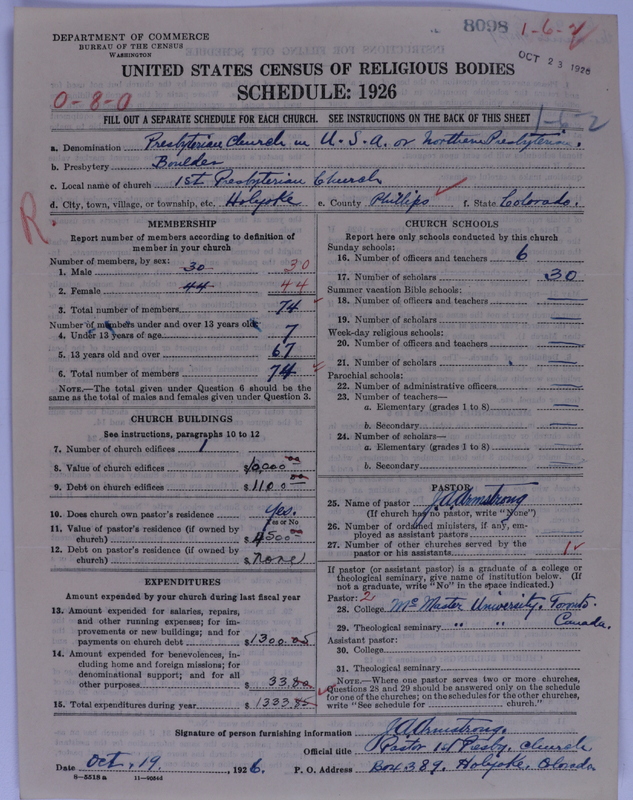 8098 1-6-2
DEPARTMENT OF COMMERCE
BUREAU OF THE CENSUS
WASHINGTON
OCT 23 1926
UNITED STATES CENSUS OF RELIGIOUS BODIES
SCHEDULE: 1926
0-8-0
FILL OUT A SEPARATE SCHEDULE FOR EACH CHURCH. SEE INSTRUCTIONS ON THE BACK OF THIS SHEET
1-6-2
a. Denomination Presbyterian Church in U.S.A. or Northern Presbyterian.
b. Presbytery Boulder
c. Local name of church 1st Presbyterian Church
d. City, town, village, or township, etc. Holyoke e. County Phillips f. State Colorado.
R.
MEMBERSHIP
Report number of members according to definition of
member in your church
Number of members, by sex:
1. Male 30 30
2. Female 44 44
3. Total number of members 74
Number of members under and over 13 years old
4. Under 13 years of age 7
5. 13 years old and over 67
6. Total number of members 74
NOTE.—The total given under Question 6 should be
same as the total of males and females given under Question 3.
CHURCH BUILDINGS
See instructions, paragraphs 10 to 12
7. Number of church edifices 1
8. Value of church edifices $10,000 00
9. Debt on church edifices $1100 00
10. Does church own pastor's residence Yes.
Yes or No
11. Value of pastor's residence (if owned by
church) $4500
12. Debt on pastor's residence (if owned by
church) $none
EXPENDITURES
Amount expended by your church during last fiscal year
13. Amount expended for salaries, repairs,
and other running expenses; for im-
provements or new buildings; and for
payments on church debt $1300.05
14. Amount expended for benevolences, in-
cluding home and foreign missions; for
denominational support; and for all
other purposes $33.80
15. Total expenditures during year $1333.85
CHURCH SCHOOLS
Report here only schools conducted by this church
Sunday schools:
16. Number of officers and teachers 6
17. Number of scholars 30
Summer vacation Bible schools:
18. Number of officers and teachers
19. Number of scholars
Week-day religious schools:
20. Number of officers and teachers
21. Number of scholars
Parochial schools:
22. Number of administrative officers
23. Number of teachers—
a. Elementary (grades 1 to 8)
b. Secondary
24. Number of scholars—
a. Elementary (grades 1 to 8)
b. Secondary
PASTOR
25. Name of pastor J.A. Armstrong
(If church has no pastor, write "None")
26. Number of ordained ministers, if any, em-
ployed as assistant pastors
27. Number of other churches served by the
pastor or his assistants 1
If pastor (or assistant pastor) is a graduate of a college or
theological seminary, give name of institution below. (If
not a graduate, write "No" in the space indicated.)
Pastor: 2
28. College McMaster University. Toronto.
29. Theological seminary " " Canada.
Assistant pastor:
30. College
31. Theological seminary
NOTE.—Where one pastor serves two or more churches,
Questions 28 and 29 should be answered only on the schedule
for one of the churches; on the schedules for the other churches,
write "See schedule for church."
Signature of person furnishing information J.A. Armstrong.
Official title Pastor 1st Presby. Church
Date Oct. 19. , 1926. P. O. Address Box 389. Holyoke, Colorado
8—5518a 11—9054